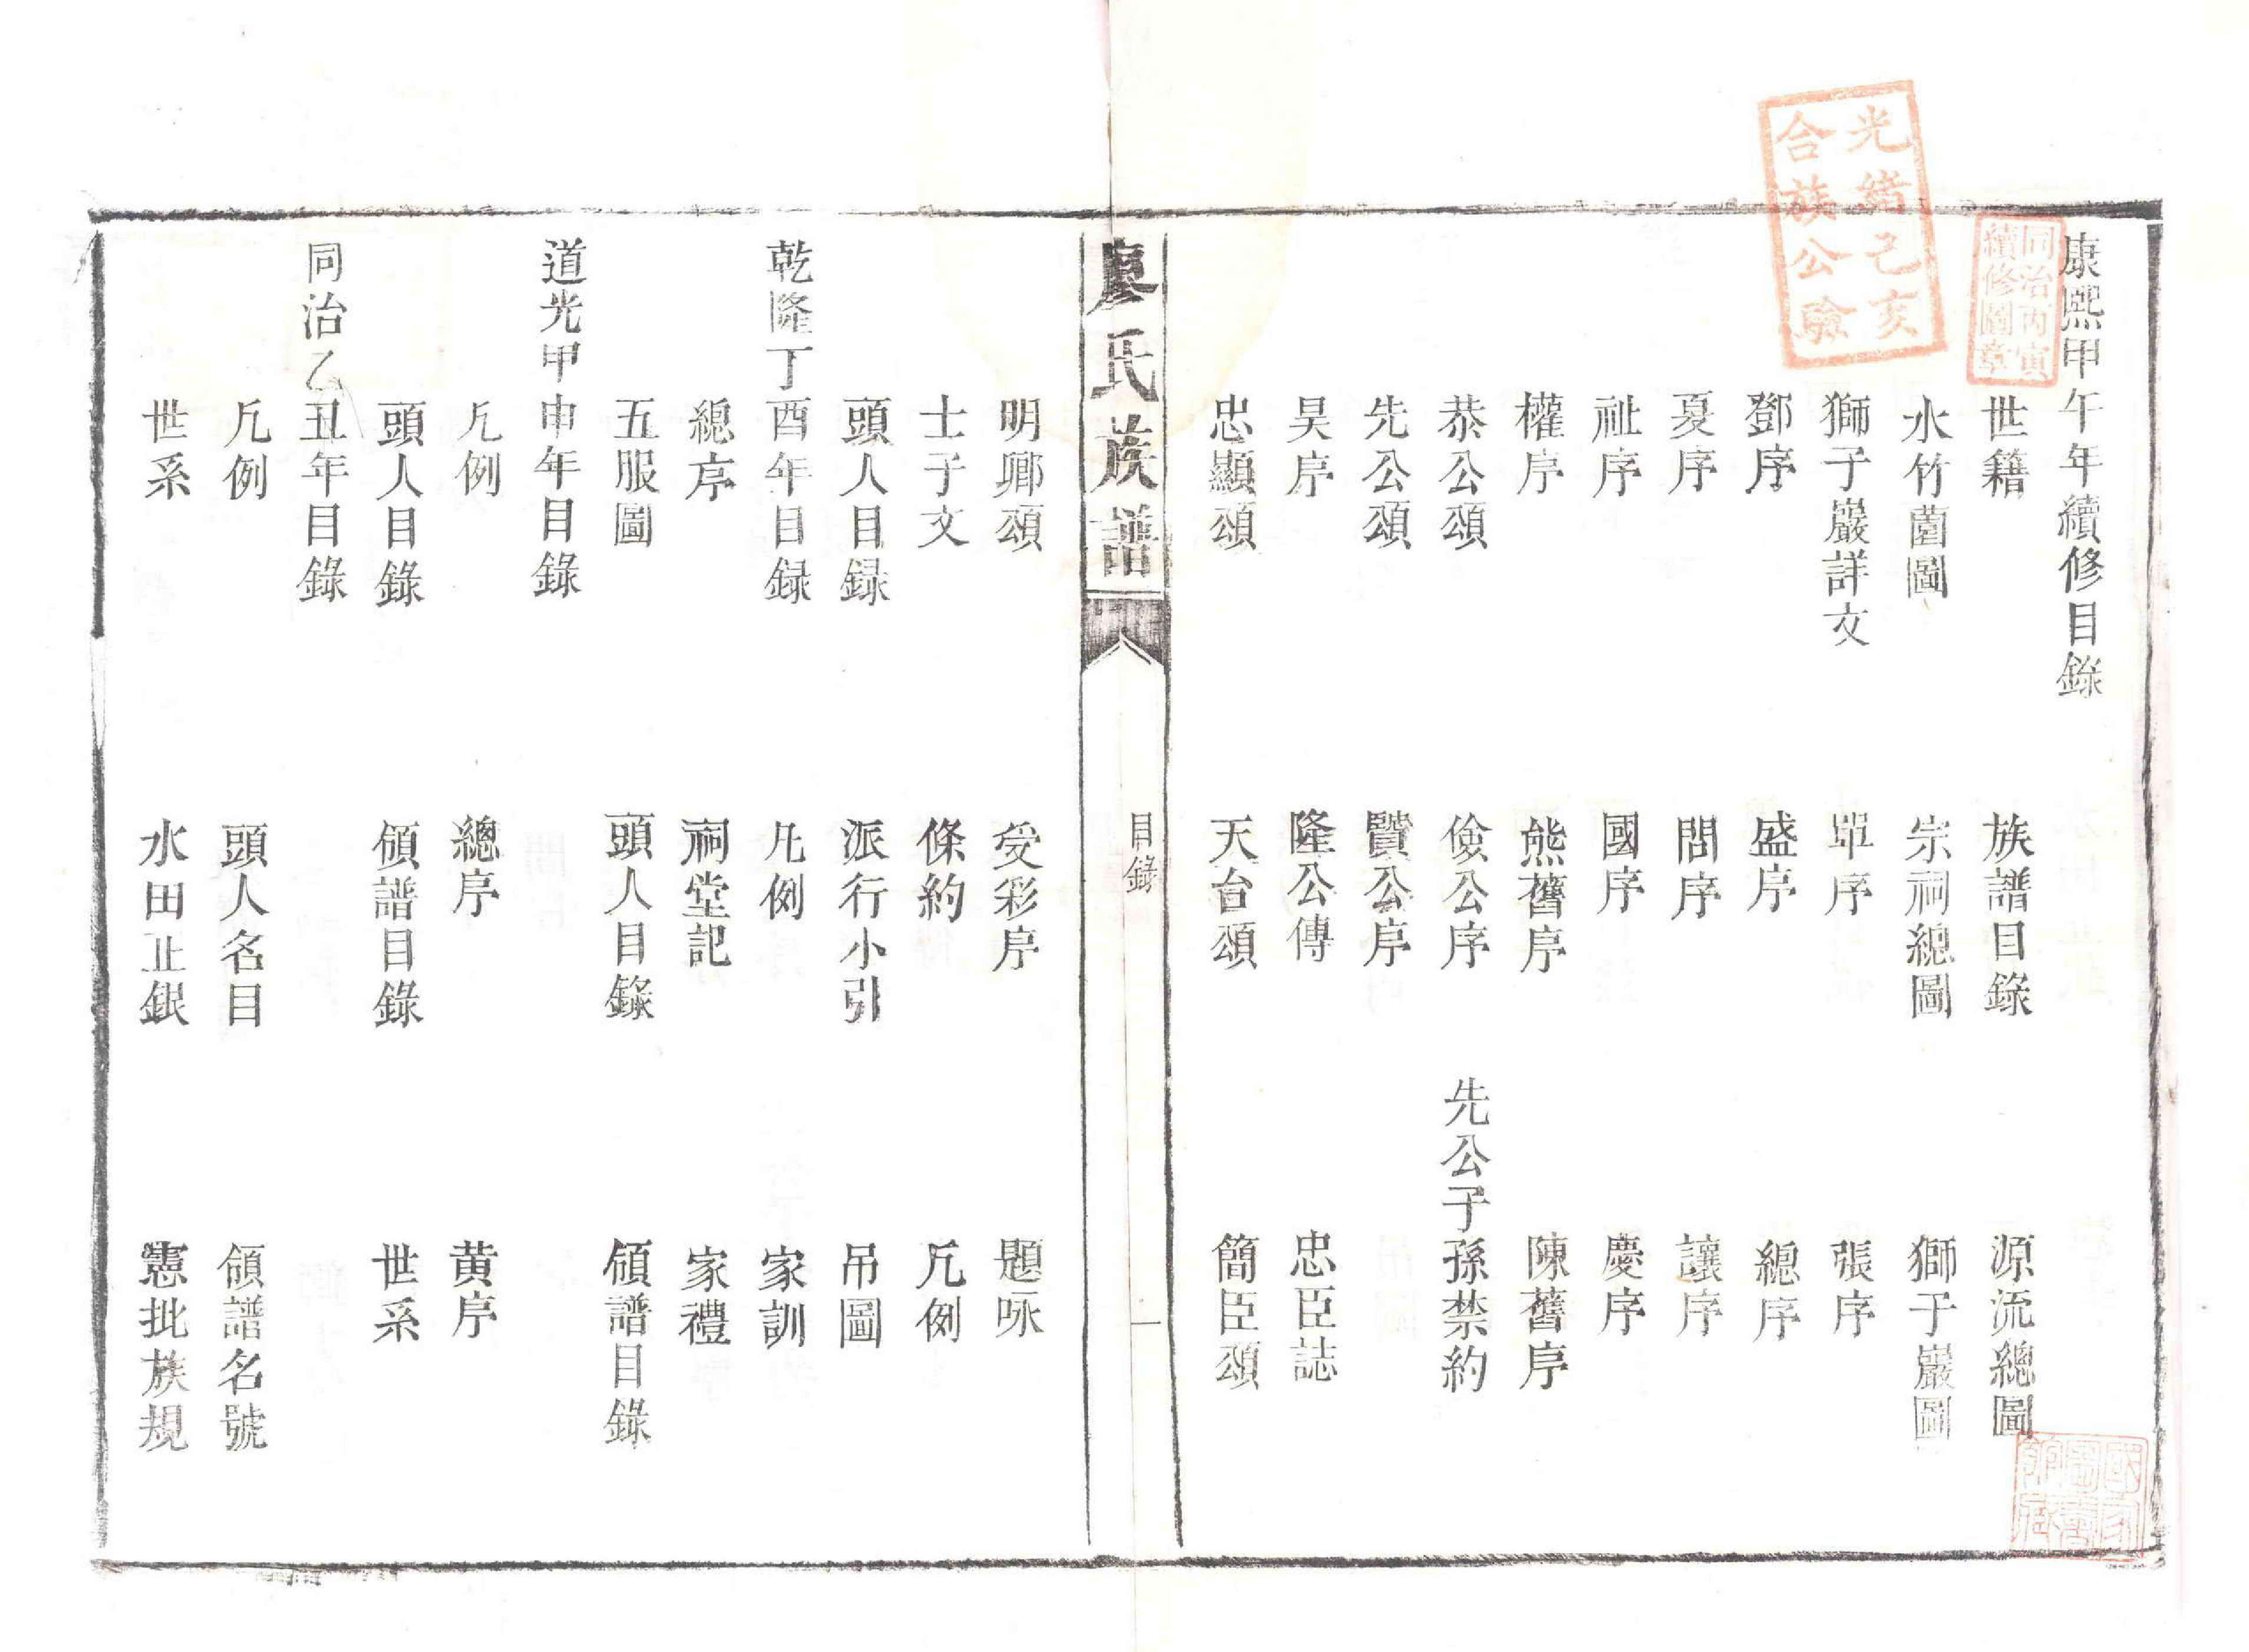 康熙甲午年續修目錄
世籍　族譜目錄　源流總圖
水竹薗圖　宗祠總圖　獅子巖圖
獅子巖詳文　單序　張序
鄧序　盛序　總序
夏序　問序　讓序
祉序　國序　慶序
權序　熊舊序　陳舊序
恭公頌　儉公序　先公子孫禁約
先公頌　贒公序
昊序　隆公傳　忠臣誌
忠顯頌　天台頌　簡臣頌
廖氏族譜　目錄　一
明鄉頌　受彩序　題咏
士子文　條約　凡例
頭人目録　派行小引　吊圖
乾隆丁酉年目録　凡例　家訓
總序　祠堂記　家禮
五服圖　頭人目錄　領譜目錄
道光甲申年目錄
凡例　總序　黄序
頭人目錄　領譜目錄　世系
同治乙丑年目錄
凡例　頭人名目　領譜名號
世系　水田正銀　憲批族規
光緒己亥
合族公驗
同治丙寅
續修圖章
國家
圖書
館藏